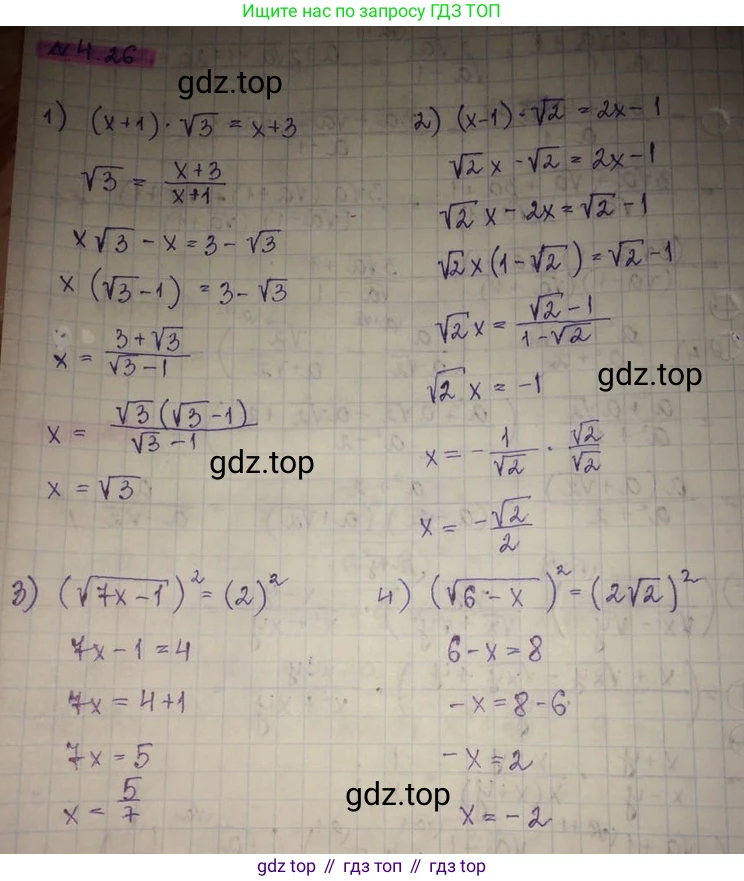 Ищите нас по запросу ГДЗ ТОП
№ 4.26
gdz.top
1) (x+1)·√3 = x+3
√3 = (x+3)/(x+1)
x√3 - x = 3 - √3
x (√3 - 1) = 3 - √3
x = (3+√3)/(√3-1)
x = (√3(√3-1))/(√3-1)
gdz.top
x = √3
2) (x-1)·√2 = 2x-1
√2 x - √2 = 2x-1
√2 x - 2x = √2 - 1
√2 x (1-√2) = √2 - 1
√2 x = (√2-1)/(1-√2)
gdz.top
√2 x = -1
x = - 1/√2 · √2/√2
x = - √2/2
3) (√(7x-1))² = (2)²
7x-1 = 4
7x = 4+1
7x = 5
x = 5/7
4) (√(6-x))² = (2√2)²
6-x = 8
-x = 8-6
-x = 2
gdz.top
x = -2
gdz.top // гдз топ // gdz.top